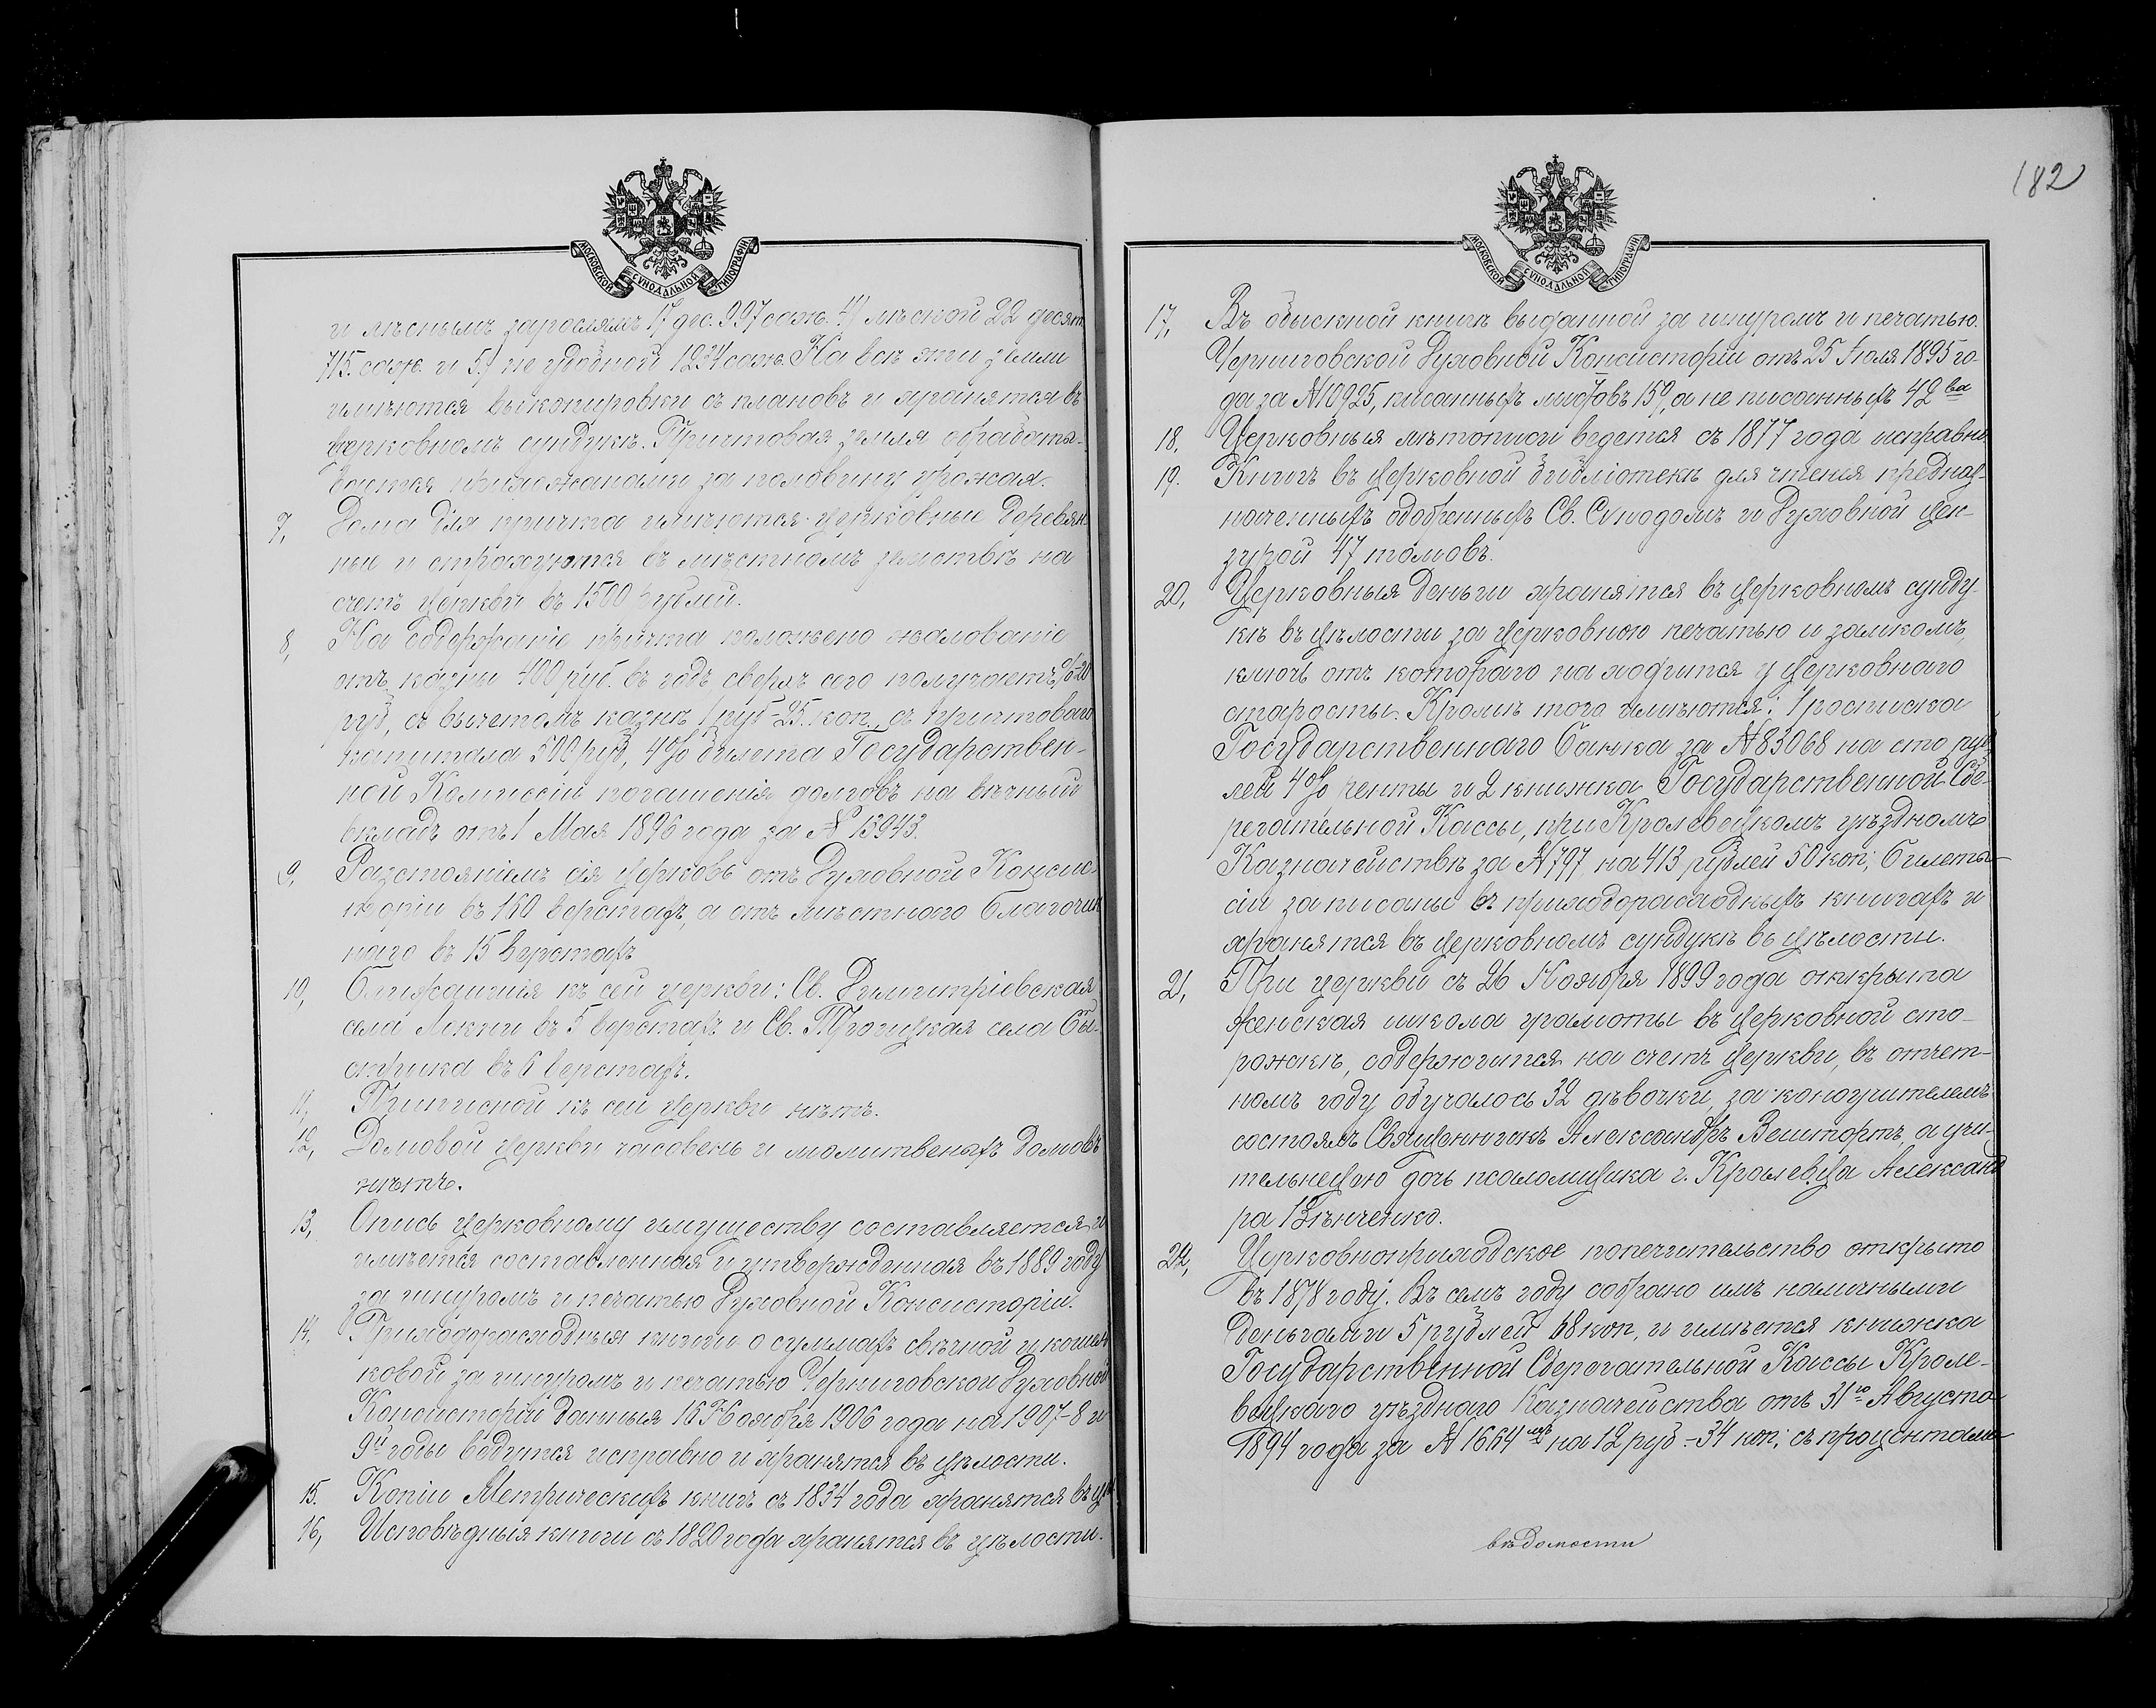 МОСКОВСКОЙ СѴНОДАЛЬНОЙ ТИПОГРАФІИ
и лѣснымъ зарослямъ 17 дес. 997 саж. 4) лѣсной 22 десят.
715. саж. и 5.) не удобной 1234 саж. На всѣ эти земли
имѣются выкопировки съ плановъ и хранятся въ
церковномъ сундукѣ. Причтовая земля обработы-
вается прихожанами за половину урожая.
7, Дома для причта имѣются церковные деревян-
ные и страхуются въ мѣстномъ земствѣ на
счетъ церкви въ 1500 рублей.
8, На содержаніе причта положено жалованіе
отъ казны 400 руб. въ годъ сверхъ сего получаетъ % 20
руб, съ вычетомъ казнѣ 1 руб-25. коп., съ причтоваго
капитала 500 руб, 4% билета Государствен-
ной Комиссіи погашенія долговъ на вѣчный
вкладъ отъ 1 Мая 1896 года за № 13943.
9, Разстояніемъ сія церковь отъ Духовной Консис-
торіи въ 160 верстахъ, а отъ мѣстного Благочин
наго въ 15 верстахъ
10, Ближайшія къ сей церкви: Св. Димитріевская
села Локни въ 5 верстахъ и Св. Троицкая села
въ 6 верстахъ.
11, Приписной къ сей церкви нѣтъ.
12, Домовой церкви часовень и молитвеныхъ домовъ
нѣтъ.
13, Опись церковному имуществу составляется и
имѣется составленная и утвержденная въ 1889 году
за шнуромъ и печатью Духовной Консисторіи.
14, Приходорасходныя книги о суммахъ свѣчной и кошель
ковой за шнуромъ и печатью Черниговской Духовной
Консисторіи данныя 16 Ноября 1906 года на 1907-8 и
9й годы ведутся исправно и хранятся въ цѣлости.
15. Копіи Метрическихъ книгъ съ 1834 года хранятся въ цѣл
16, Исповѣдныя книги съ 1820 года хранятся въ цѣлости.
182
МОСКОВСКОЙ СѴНОДАЛЬНОЙ ТИПОГРАФІИ
17, Въ обыскной книгѣ выданной за шнуромъ и печатью
Черниговской Духовной Консисторіи отъ 25 Іюля 1895 го-
да за №10925, писанныхъ листовъ 159, а не писанныхъ 42 ва
18, Церковныя лѣтописи ведется съ 1877 года исправно
19. Книгъ въ церковной библіотекѣ для чтенія предназ-
наченныхъ одобренныхъ Св. Сѵнодомъ и Духовной цен-
зурой 47 томовъ.
20, Церковныя деньги хранятся въ церковномъ сунду-
кѣ въ цѣлости за церковною печатью и замкомъ,
ключъ отъ котораго находится у церковного
старосты. Кромѣ того имѣются: 1 росписка
Государственнаго банка за №83068 на сто руб
лей 4% ренты и 2 книжка Государственной Сбе-
регательной Кассы, при Кролевецкомъ уѣздномъ
Казначействѣ за №797 на 413 рублей 50 коп; билеты
сіи записаны въ приходорасходныхъ книгахъ и
хранятся въ церковномъ сундукѣ въ цѣлости.
21, При церкви съ 26 Ноября 1899 года открыта
женская школа грамоты въ церковной сто-
рожкѣ, содержится на счетъ церкви, въ отчет-
номъ году обучалось 32 дѣвочки, законоучителемъ
состоялъ Священникъ Александръ Вештортъ, а учи-
тельницею дочь псаломщика г. Кролевца Александ
ра
22, Церковноприходское попечительство открыто
въ 1878 году. Въ семъ году собрано имъ наличными
деньгами 5 рублей 68 коп, и имѣется книжка
Государственной Сберегательной Кассы Кроле-
вецкаго уѣзднаго Казначейства отъ 31го Августа
1894 года за № 1664 мъ на 12 руб.-34 коп; съ процентами
вѣдомости